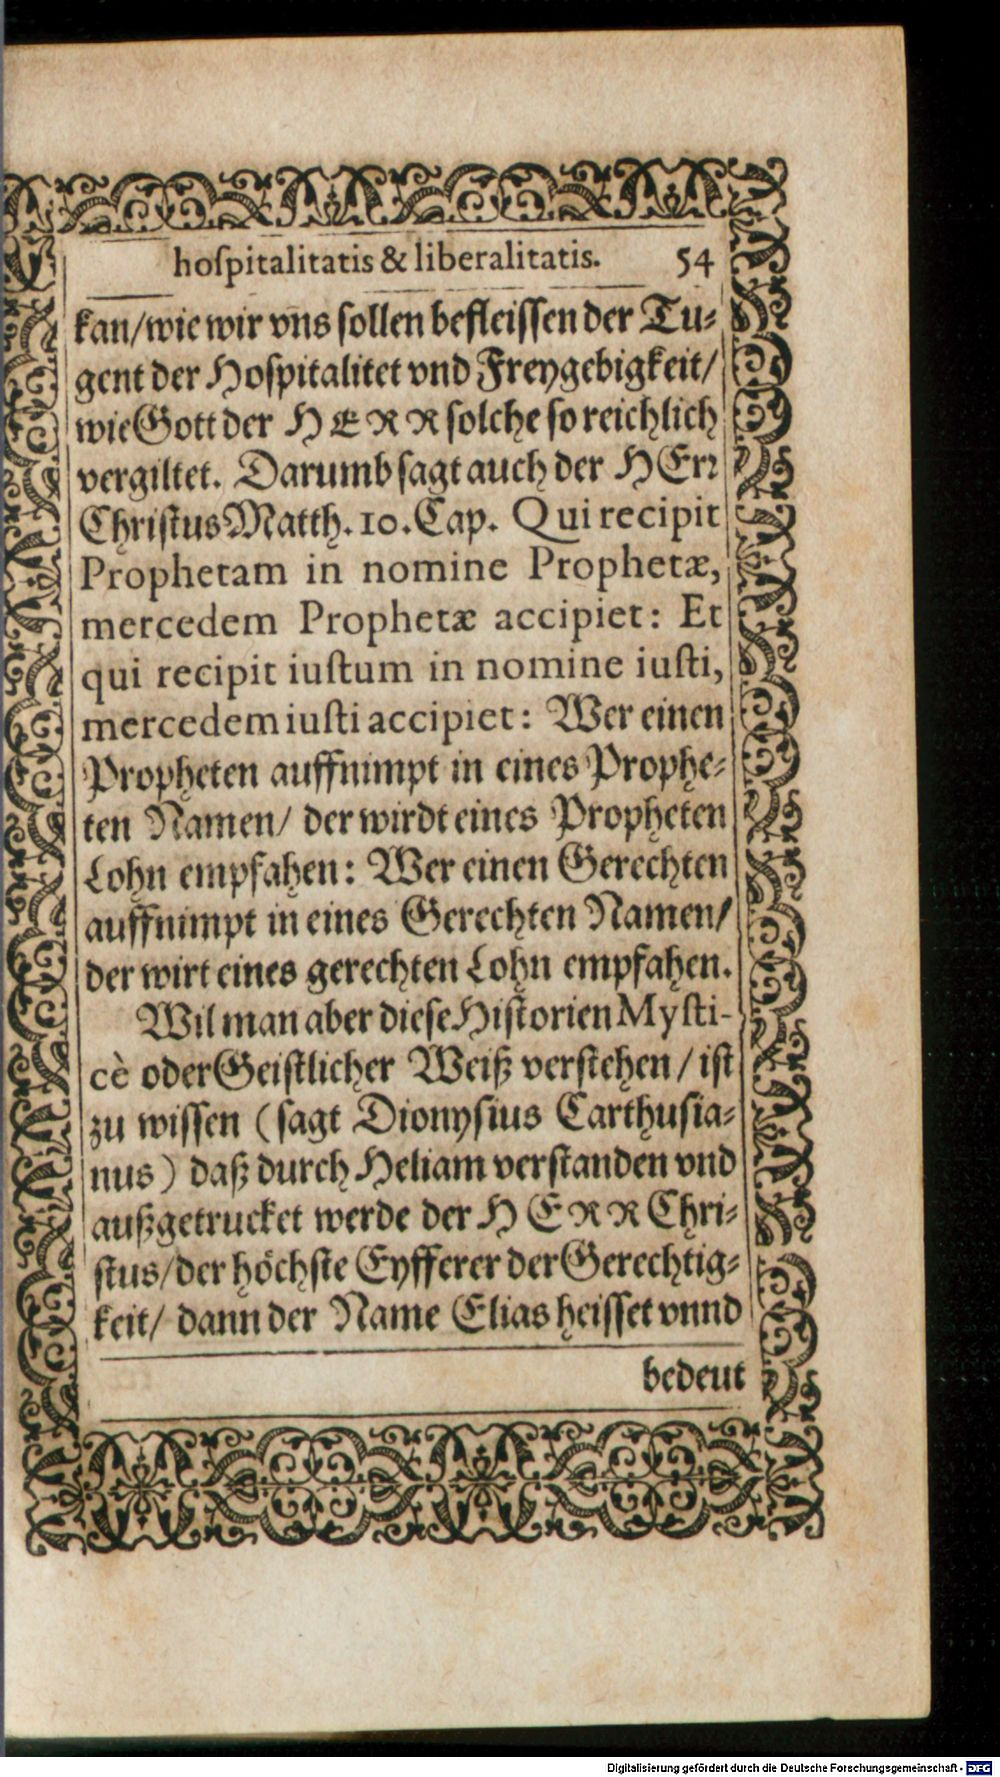 hoſpitalitatis & liberalitatis. 54
kan/wie wir vns ſollen befleiſſen der Tu⸗
gent der Hoſpitalitet vnd Freygebigkeit/
wie Gott der HERR ſolche ſo reichlich
vergiltet. Darumb ſagt auch der HErꝛ
Chriſtus Matth. 10. Cap. Qui recipit
Prophetam in nomine Prophetæ,
mercedem Prophetæ accipiet: Et
qui recipit iuſtum in nomine iuſti,
mercedem iuſti accipiet: Wer einen
Propheten auffnimpt in eines Prophe⸗
ten Namen/ der wirdt eines Propheten
Lohn empfahen: Wer einen Gerechten
auffnimpt in eines Gerechten Namen/
der wirt eines gerechten Lohn empfahen.
Wil man aber dieſe Hiſtorien Myſti-
cè oder Geiſtlicher Weiß verſtehen / iſt
zu wiſſen (ſagt Dionyſius Carthuſia⸗
nus) daß durch Heliam verſtanden vnd
außgetrucket werde der HERR Chri⸗
ſtus/der höchſte Eyfferer der Gerechtig⸗
keit/ dann der Name Elias heiſſet vnnd
bedeut
Digitalisierung gefördert durch die Deutsche Forschungsgemeinschaft - DFG